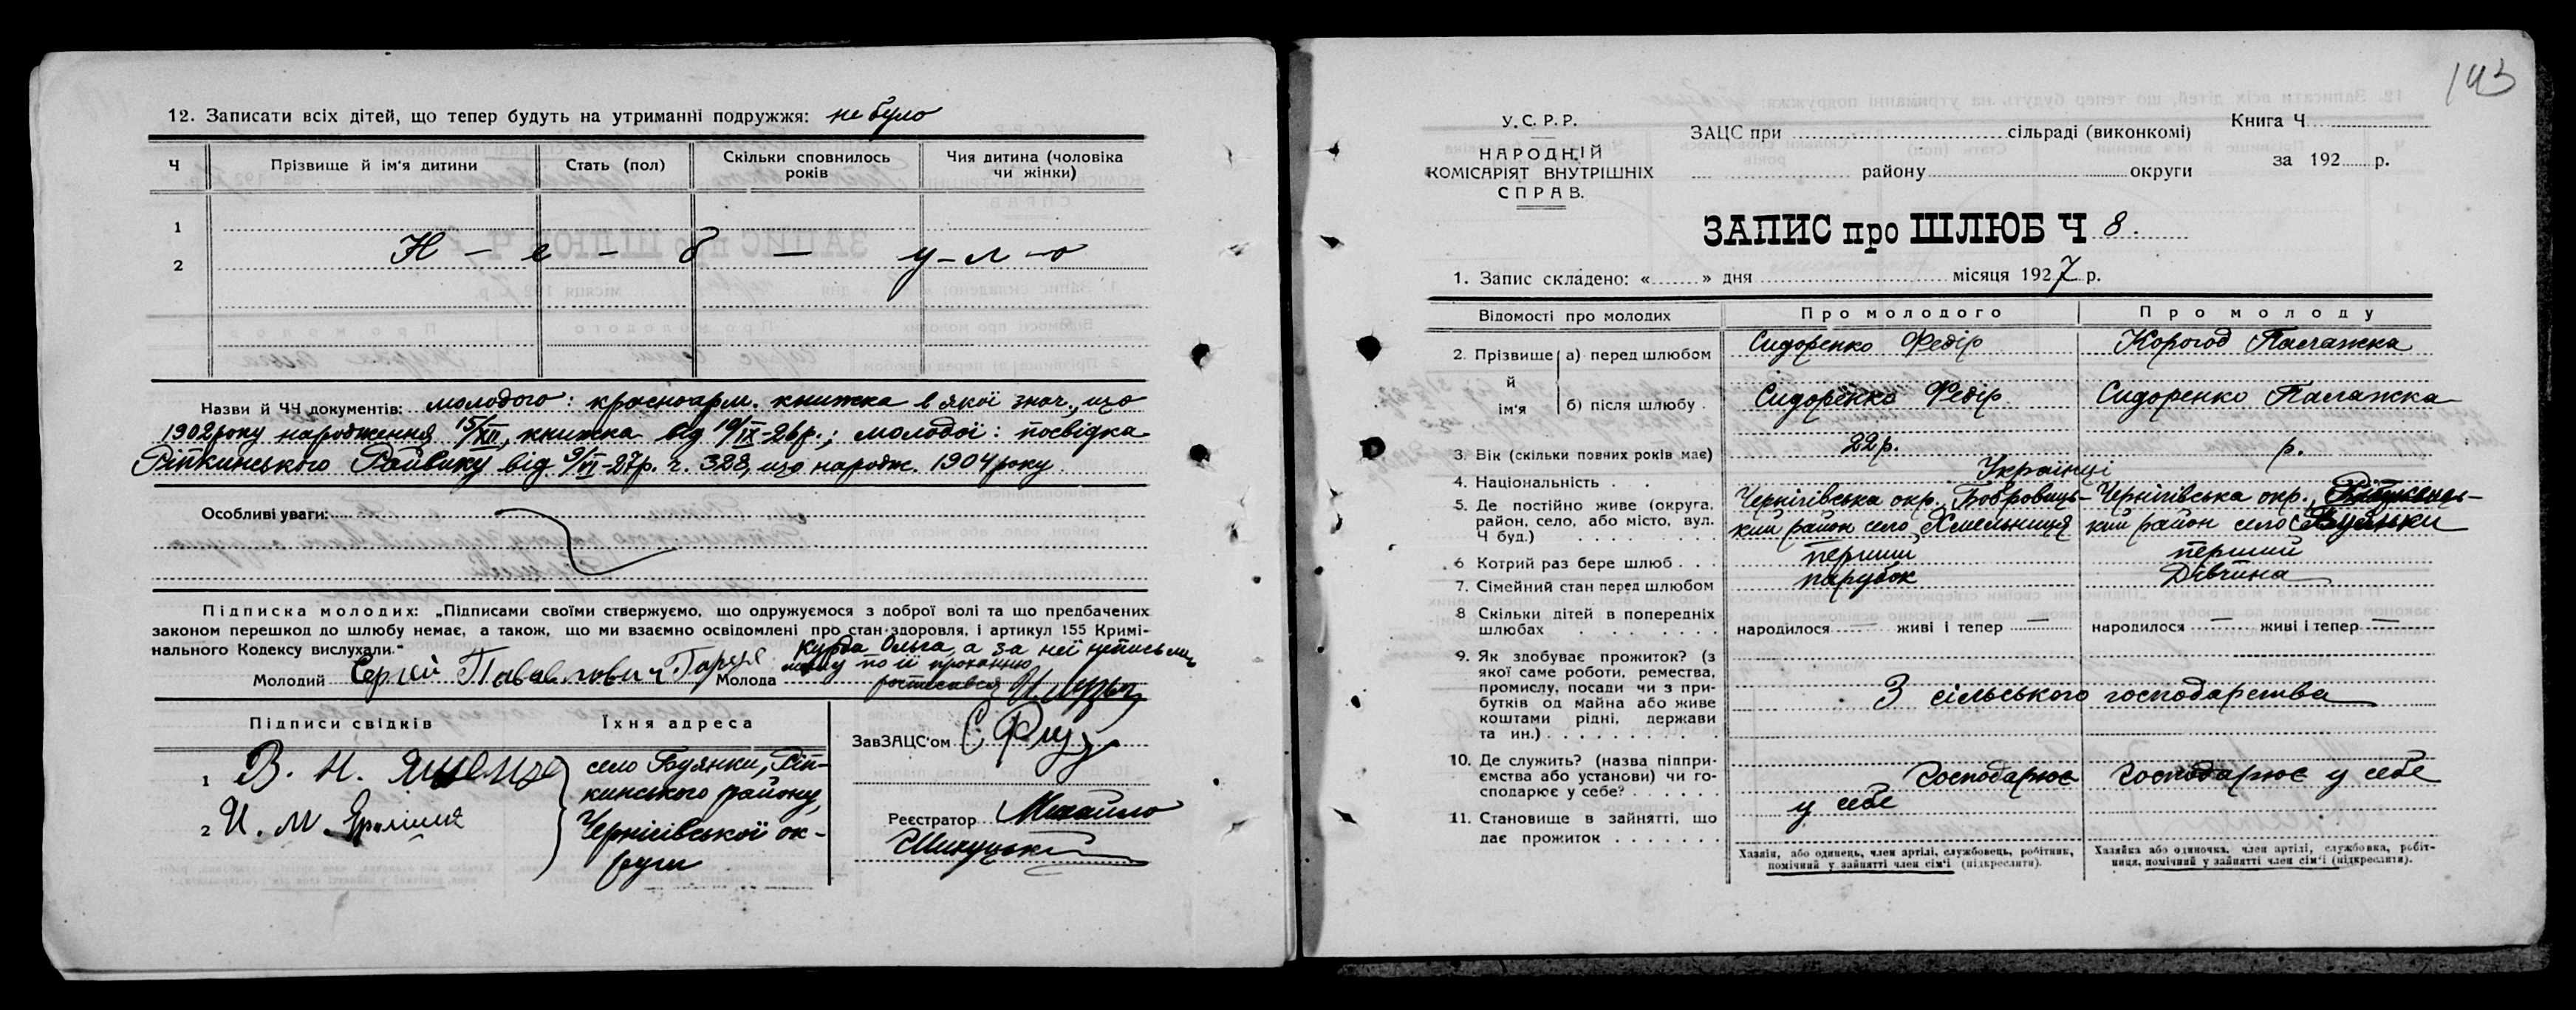 12. Записати всіх дітей, що тепер будуть на утриманні подружжя: не було
Ч Прізвище й ім'я дитини Стать (пол) Скільки сповнилось років Чия дитина (чоловіка чи жінки)
1
Н - е - б - у - л - о
2
Назви й ЧЧ документів: молодого: красноарм. книжка в якої знач., що
1902 року народження 15/XII, книжка від 10/IX-26р.; молодої: посвідка
Ріпкинського Райвику від 9/VI-27р. ч. 328, що народж. 1904 року
Особливі уваги:
Підписка молодих: „Підписами своїми стверджуємо, що одружуємося з доброї волі та що предбачених
законом перешкод до шлюбу немає, а також, що ми взаємно освідомлені про стан здоровля, і артикул 155 Кримі-
нального Кодексу вислухали."
Курба Ольга, а за неї неписьмен
ну по її проханню
Молодий Сергій Павлович Молода розписався
Підписи свідків Їхня адреса
ЗавЗАЦС'ом
1 В. Н.
2 И. М.
село Буянки, Ріп-
кинського району,
Чернігівської ок-
руги
Реєстратор Михайло
143
У.С.Р.Р.
НАРОДНІЙ
КОМІСАРІЯТ ВНУТРІШНІХ
СПРАВ.
ЗАЦС при сільраді (виконкомі)
району округи
Книга Ч
за 192 р.
ЗАПИС про ШЛЮБ Ч 8.
1. Запис складено: « » дня місяця 1927 р.
Відомості про молодих Про молодого Про молоду
2. Прізвище й ім'я а) перед шлюбом Сидоренко Федір Корогод Палажка
б) після шлюбу Сидоренко Федір Сидоренко Палажка
3. Вік (скільки повних років має) 22р. р.
4. Національність Українці
5. Де постійно живе (округа, район, село, або місто, вул. Ч буд.)
Чернігівська окр. Бобровиць-
кий район село Хмельниця
Чернігівська окр.,
кий район село Буянки
6 Котрий раз бере шлюб перший перший
7. Сімейний стан перед шлюбом парубок Дівчина
8 Скільки дітей в попередніх шлюбах народилося — живі і тепер — народилося — живі і тепер —
9. Як здобуває прожиток? (з
якої саме роботи, ремества,
промислу, посади чи з при-
бутків од майна або живе
коштами рідні, держави
та ин.)
З сільського господарства
10. Де служить? (назва підпри-
ємства або установи) чи го-
сподарює у себе?
Господарює у себе
Господарює у себе
11. Становище в зайнятті, що
дає прожиток
Хазяїн, або одинець, член артілі, службовець, робітник,
помічний у зайнятті член сім'ї (підкреслити).
Хазяйка або одиночка, член артілі, службовка, робіт-
ниця, помічний у зайнятті член сім'ї (підкреслити).